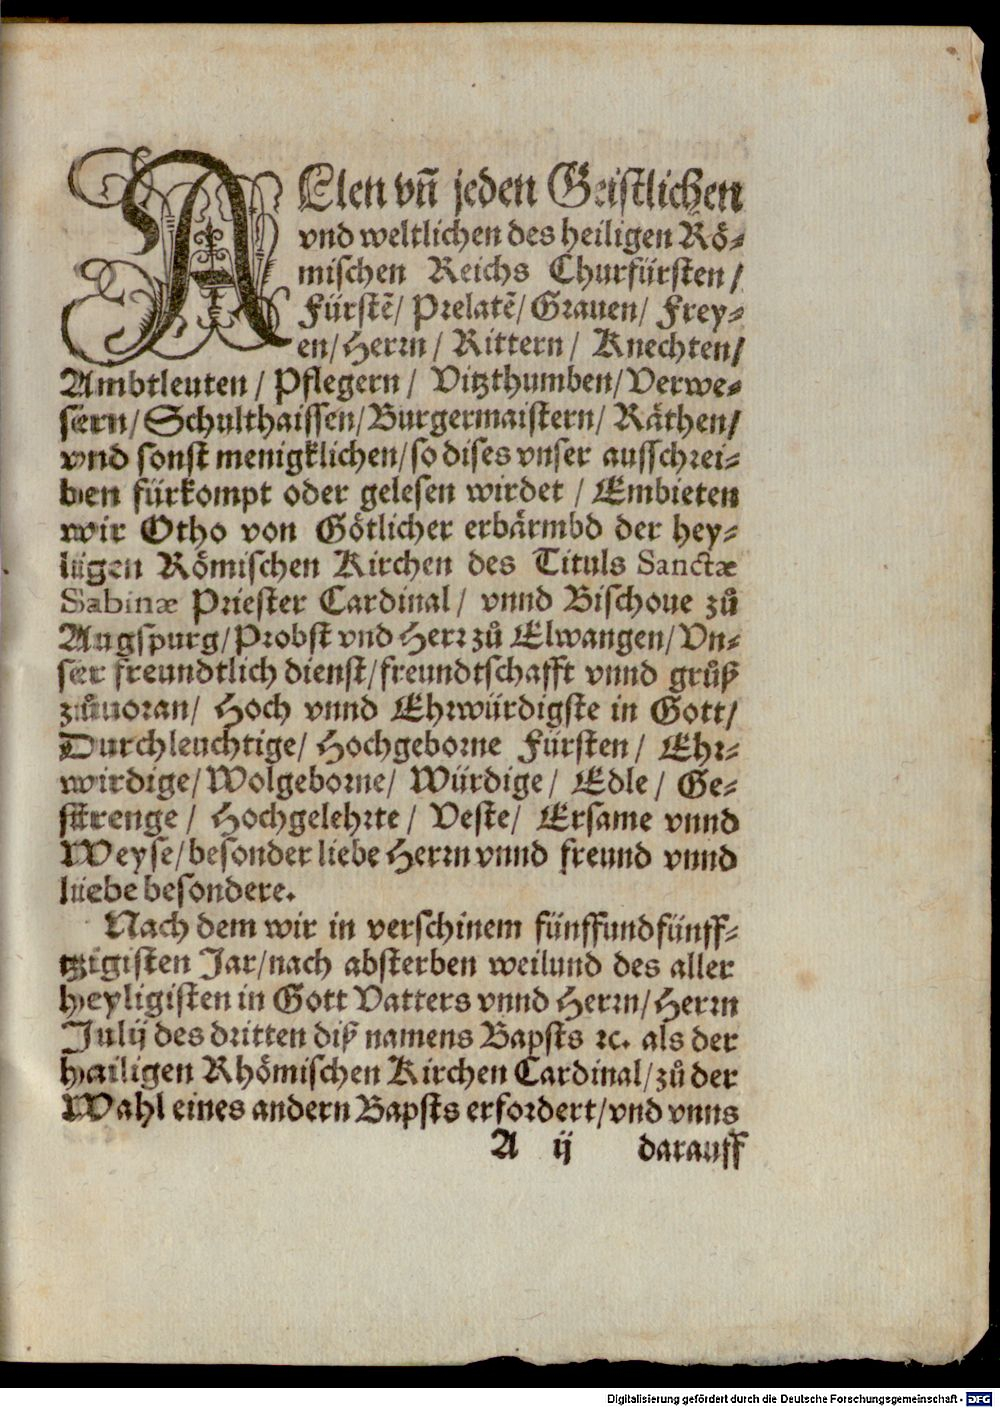 ALlen vñ jeden Geistlichen
vnd weltlichen des heiligen Rö⸗
mischen Reichs Churfürsten/
Fürstẽ/ Prelatẽ/ Grauen/ Frey⸗
en/ Herrn/ Rittern/ Knechten/
Ambtleuten/ Pflegern/ Vitzthumben/ Verwe⸗
sern/ Schulthaissen/ Burgermaistern/ Räthen/
vnd sonst menigklichen/ so dises vnser ausschrei⸗
ben fürkompt oder gelesen wirdet/ Embieten
wir Otho von Götlicher erbärmbd der hey⸗
ligen Römischen Kirchen des Tituls Sanctæ
Sabinæ Priester Cardinal/ vnnd Bischoue zů
Augspurg/ Probst vnd Herr zů Elwangen/ Vn⸗
ser freundtlich dienst/ freundtschafft vnnd grůß
zůuoran/ Hoch vnnd Ehrwürdigste in Gott/
Durchleuchtige/ Hochgeborne Fürsten/ Ehr⸗
wirdige/ Wolgeborne/ Würdige/ Edle/ Ge⸗
strenge/ Hochgelehrte/ Veste/ Ersame vnnd
Weyse/ besonder liebe Herrn vnnd freund vnnd
liebe besondere.
Nach dem wir in verschinem fünffundfünff⸗
tzigisten Jar/ nach absterben weilund des aller
heyligisten in Gott Vatters vnnd Herrn/ Herrn
Julij des dritten diß namens Bapsts ꝛc. als der
hailigen Rhömischen Kirchen Cardinal/ zů der
Wahl eines andern Bapsts erfordert/ vnd vnns
A ij darauff
Digitalisierung gefördert durch die Deutsche Forschungsgemeinschaft - DFG